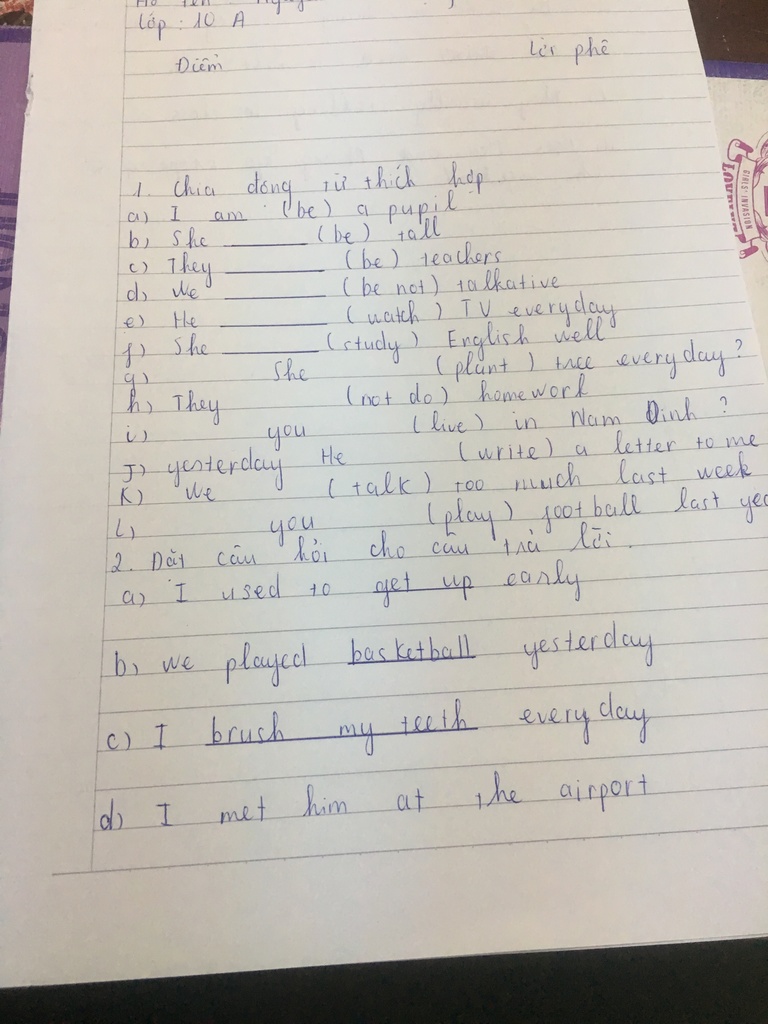 Lớp : 10 A
Điểm
Lời phê
1. Chia động từ thích hợp
a) I am (be) a pupil
b) She ________ (be) tall
c) They ________ (be) teachers
d) We ________ (be not) talkative
e) He ________ (watch) TV everyday
f) She ________ (study) English well
g) She (plant) tree everyday?
h) They (not do) homework
i) you (live) in Nam Định ?
J) yesterday He (write) a letter to me
K) We (talk) too much last week
L) you (play) football last
2. Đặt câu hỏi cho câu trả lời.
a) I used to get up early
b) we played basketball yesterday
c) I brush my teeth everyday
d) I met him at the airport
GIRLS' INVASION